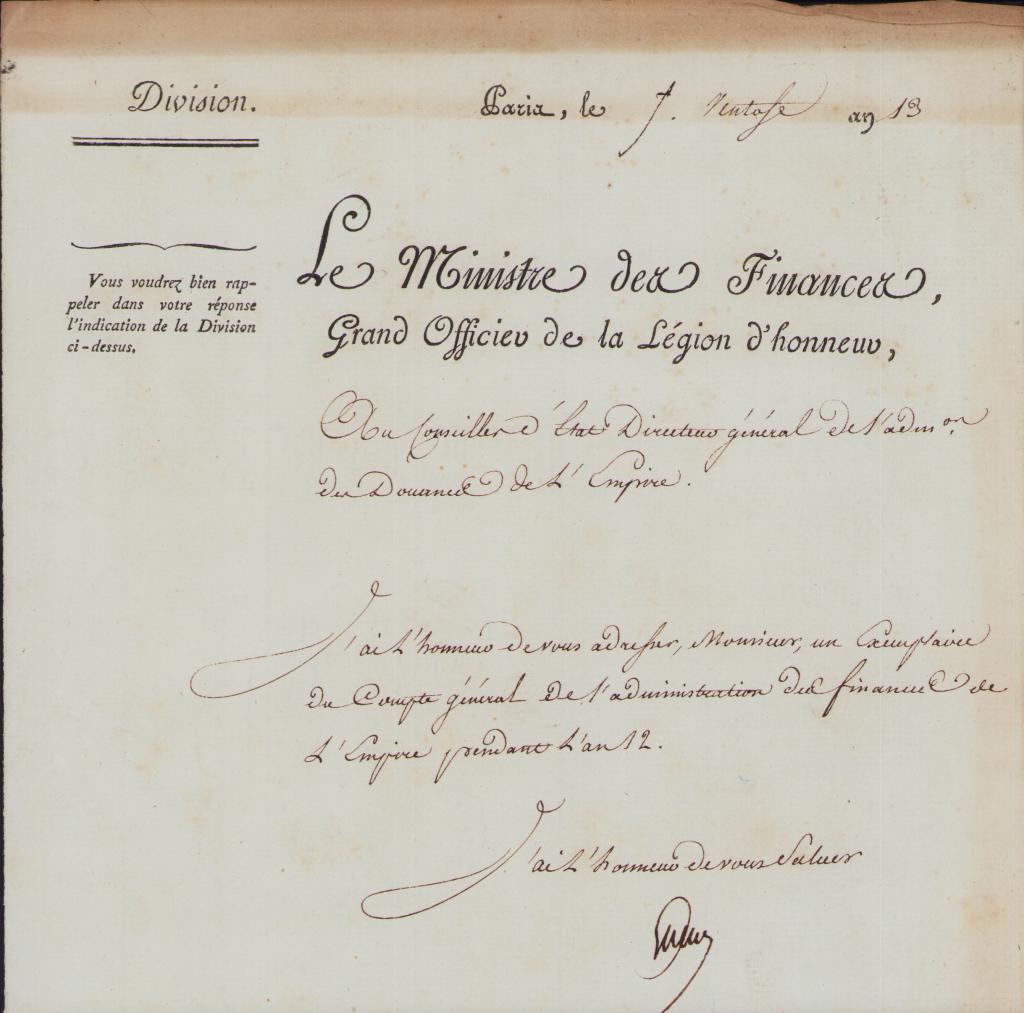 Division.
Paris, le 7. Ventose an 13
Vous voudrez bien rap-
peler dans votre réponse
l'indication de la Division
ci-dessus.
Le Ministre des Finances,
Grand Officier de la Légion d'honneur,
Au Conseiller d'État Directeur général de l'admon.
des Douanes de L'Empire.
J'ai L'honneur de vous adresser, Monsieur, un Exemplaire
du Compte général de l'administration des finances de
L'Empire pendant L'an 12.
J'ai L'honneur de vous Saluer